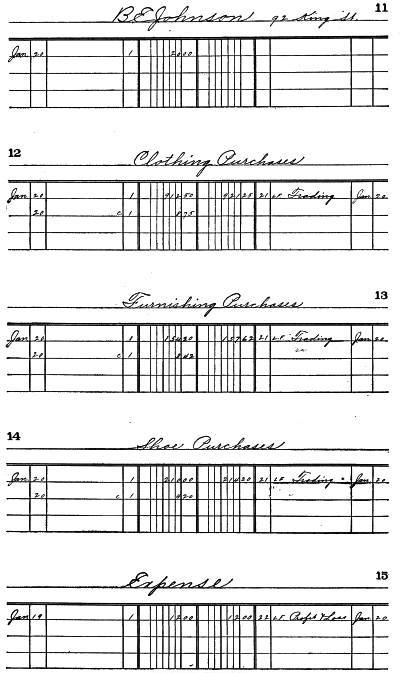 B E Johnson 92 King St. 11
Jan 20 1 2000
12
Clothing Purchases
Jan 20 1 91250 92125 21 LF Trading Jan 20
20 C 1 875
Furnishing Purchases 13
Jan 20 1 15420 15762 21 LF Trading Jan 20
20 C 1 342
14
Shoe Purchases
Jan 20 1 21000 21420 21 LF Trading Jan 20
20 C 1 420
Expense 15
Jan 19 1 1200 1200 22 LF Profit & Loss Jan 20